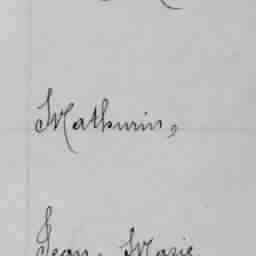 Mathurin,
Jean, Marie